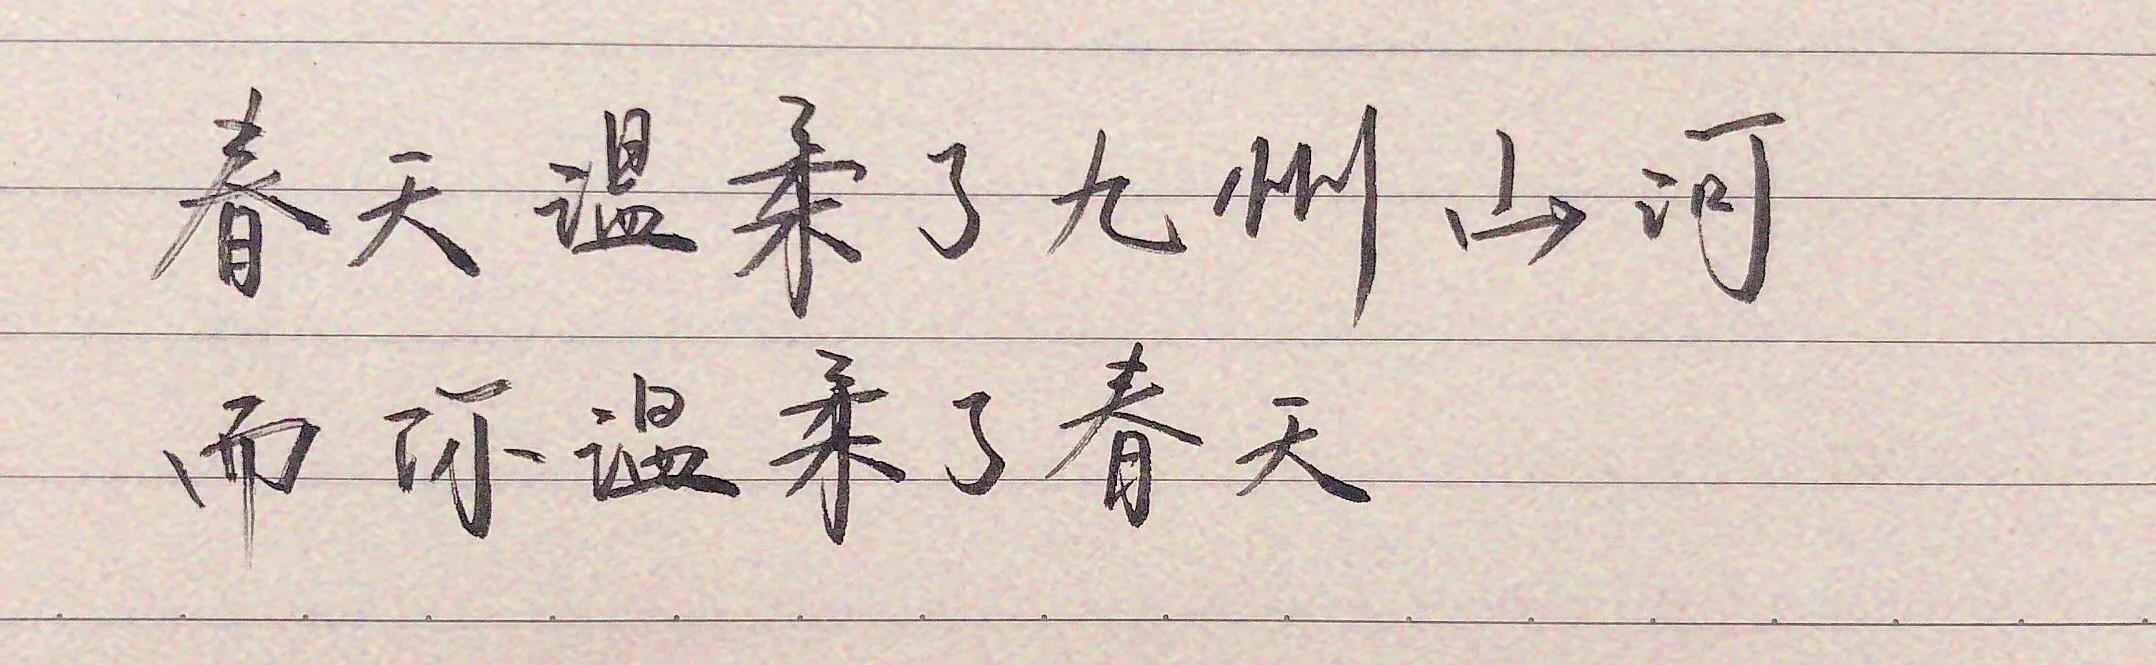 春天温柔了九州山河
而你温柔了春天